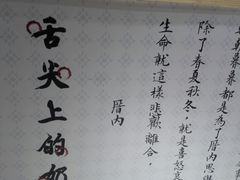 都是為了厝內思
除了春夏秋冬，就是喜怒
生命就這樣悲歡離合，
厝內
舌尖上的